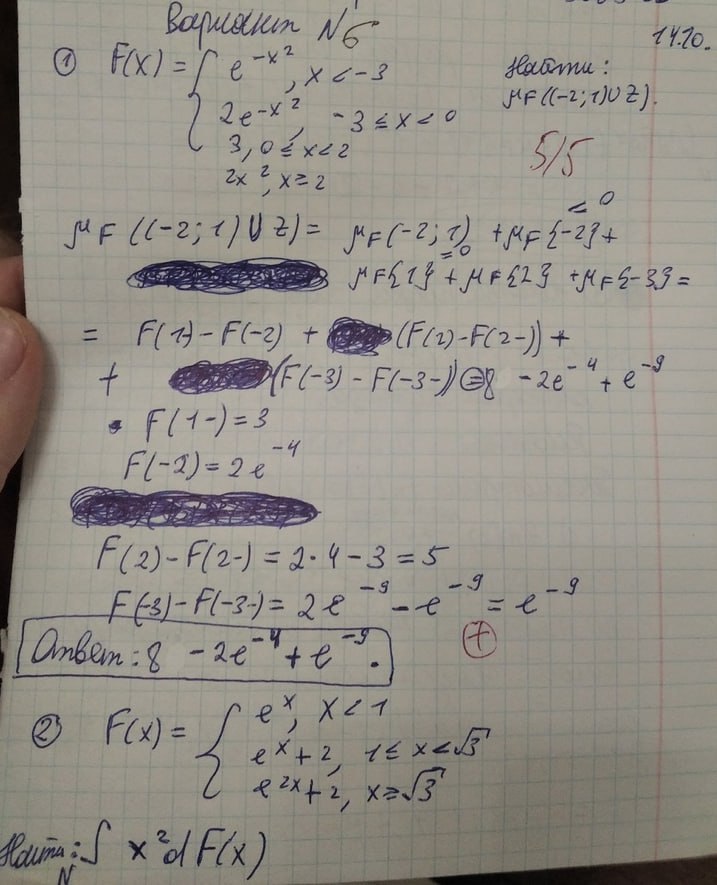 Вариант №6
14.10.
① F(x) = { e^{-x^2}, x < -3
2e^{-x^2}, -3 ≤ x < 0
3, 0 ≤ x < 2
2x^2, x ≥ 2
Найти:
μ_F((-2; 1) ∪ Z).
5/5
μ_F((-2; 1) ∪ Z) = μ_F(-2; 1) + μ_F{-2} +
= 0
= 0
μ_F{1} + μ_F{2} + μ_F{-3} =
= F(1-) - F(-2) + (F(2) - F(2-)) +
+ (F(-3) - F(-3-)) = 8 - 2e^{-4} + e^{-9}
• F(1-) = 3
F(-2) = 2e^{-4}
F(2) - F(2-) = 2·4 - 3 = 5
F(-3) - F(-3-) = 2e^{-9} - e^{-9} = e^{-9}
+
Ответ: 8 - 2e^{-4} + e^{-9}.
② F(x) = { e^x, x < 1
e^x + 2, 1 ≤ x < √3
e^{2x} + 2, x ≥ √3
Найти: ∫_N x^2 d F(x)